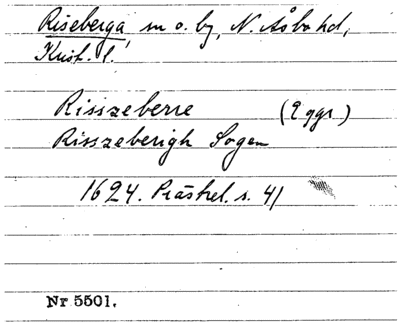 Riseberga, sn o. by, N. Åsbo hd,
Krist. l.
Risszeberre (2 ggr)
Risszeberigh Sogen
1624. Prästrel. s. 41
Nr 5501.